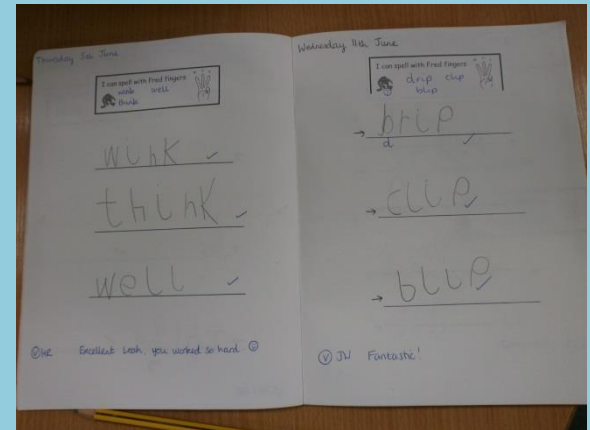 Thursday 5th June
I can spell with Fred Fingers
wink well
think
wink
think
well
HR Excellent Leah, you worked so hard
Wednesday 11th June
I can spell with Fred Fingers
drip clip
blip
brip
d
clip
blip
V JW Fantastic!